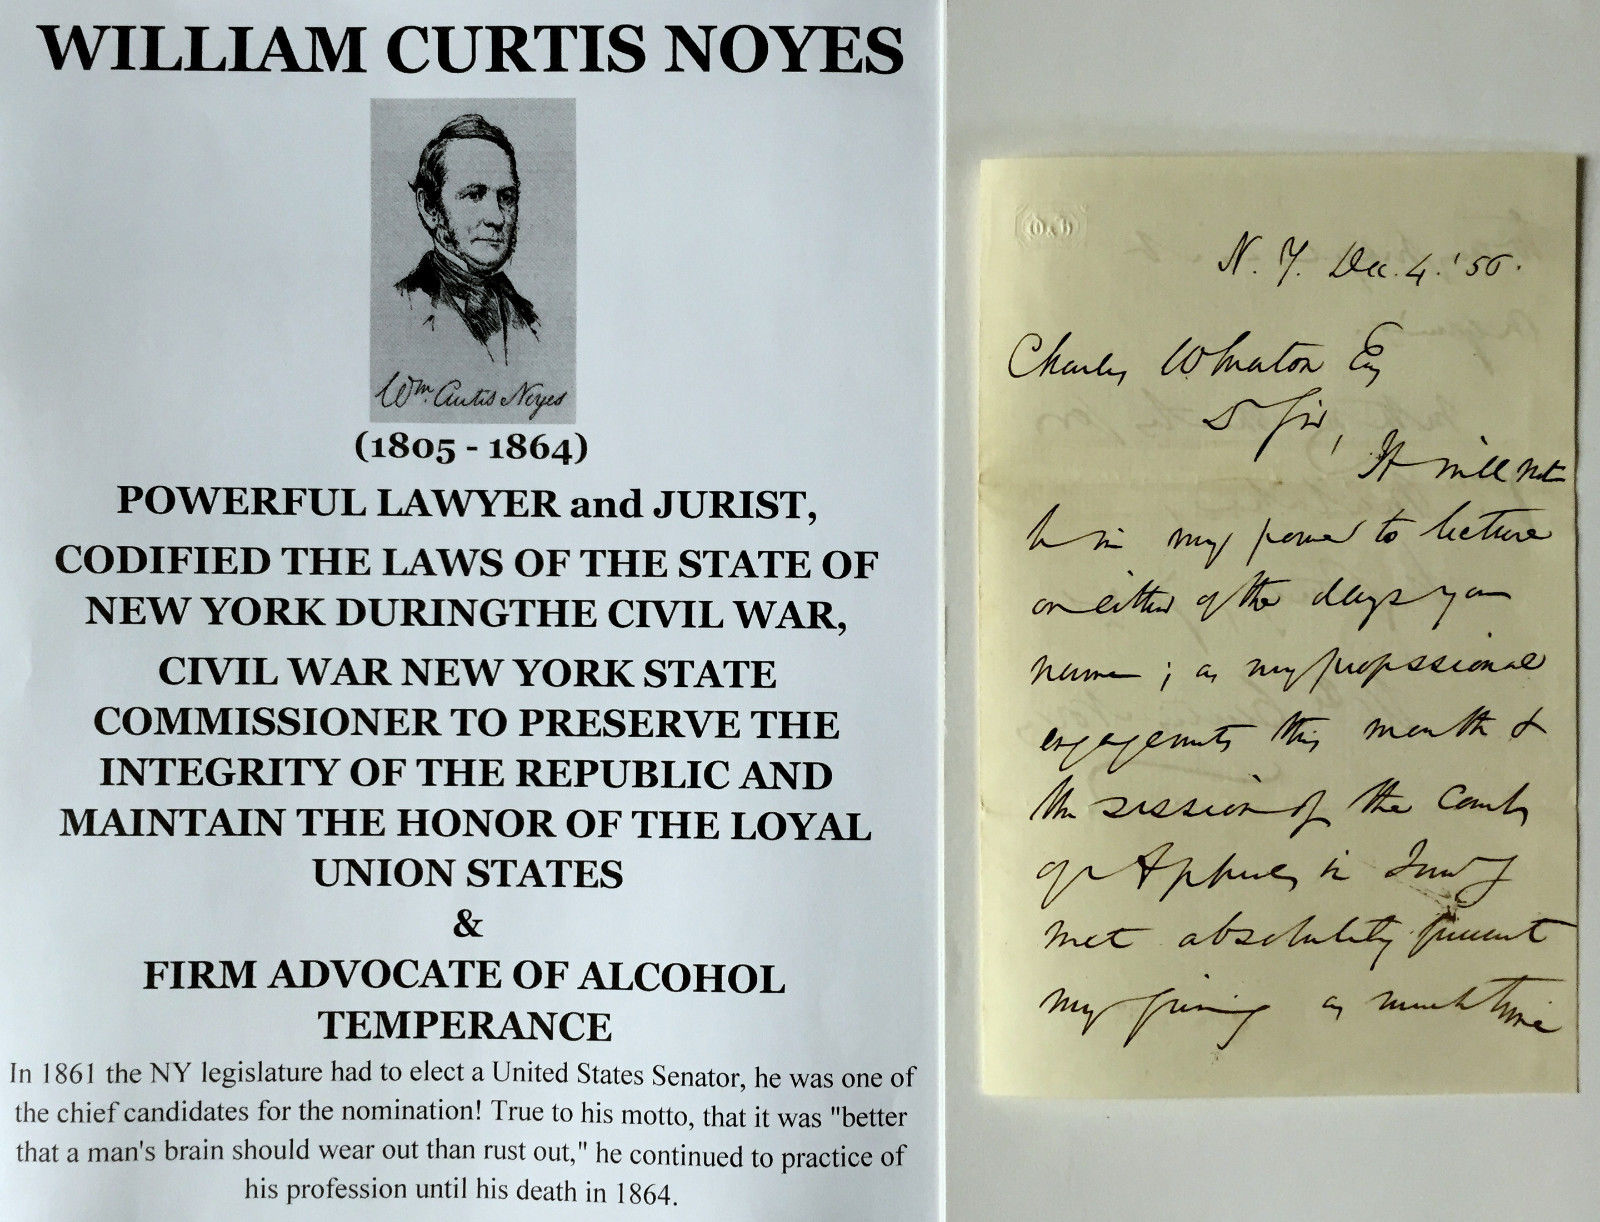 WILLIAM CURTIS NOYES
Wm. Curtis Noyes
(1805 - 1864)
POWERFUL LAWYER and JURIST,
CODIFIED THE LAWS OF THE STATE OF
NEW YORK DURINGTHE CIVIL WAR,
CIVIL WAR NEW YORK STATE
COMMISSIONER TO PRESERVE THE
INTEGRITY OF THE REPUBLIC AND
MAINTAIN THE HONOR OF THE LOYAL
UNION STATES
&
FIRM ADVOCATE OF ALCOHOL
TEMPERANCE
In 1861 the NY legislature had to elect a United States Senator, he was one of
the chief candidates for the nomination! True to his motto, that it was "better
that a man's brain should wear out than rust out," he continued to practice of
his profession until his death in 1864.
N. Y. Dec. 4. '56.
Charles Wheaton Esq
D Sir,
It will not
be in my power to lecture
on either of the days you
name; as my professional
engagements this month &
the session of the Court
of Appeals in Jany
must absolutely prevent
my giving as much time